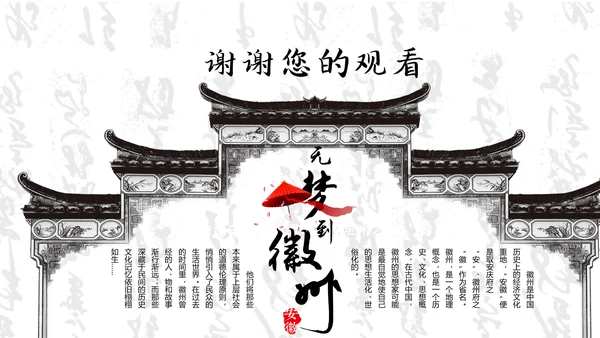 谢谢您的观看
无梦到徽州
安徽
徽州是中国
历史上的经济文化
重地,安徽“便
是取安庆府之
“安”、徽州府之
“徽”作为省名。
徽州,是一个地理
概念,也是一个历
史、文化、思想概
念,在古代中国,
徽州的思想家可能
是最自觉地使自己
的思想生活化、世
俗化的。
他们将那些
本来属于上层社会
的道德伦理原则,
悄悄引入了民众的
生活世界。在过去
的时间里,徽州曾
经的人、物和故事
渐行渐远;而那些
深藏于民间的历史
文化记忆依旧栩栩
如生……